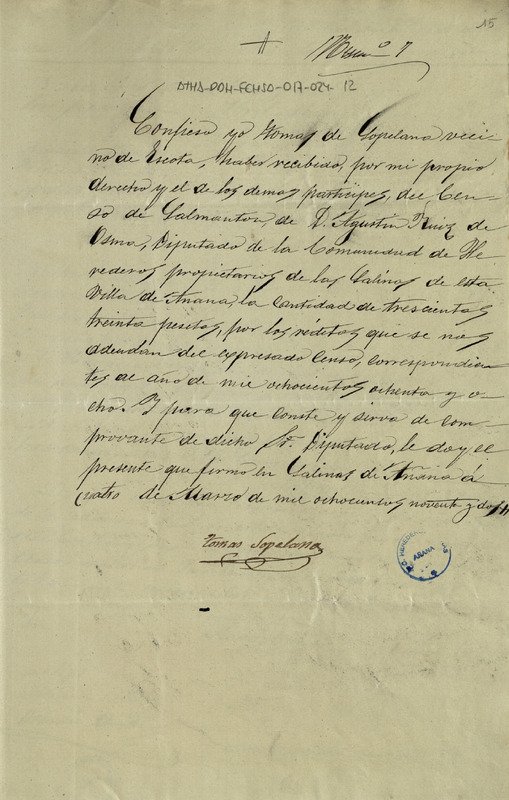 15
ATHA-DOM-FCHSO-017-024-12
Confieso yo Tomas de Sopelana veci-
no de Escota, haber recibido, por mi propio
derecho y el de los demas participes, del Cen-
so de Salmanton, de D. Agustin Ruiz de
Osma, Diputado de la Comunidad de He-
rederos propietarios de las Salinas de esta
Villa de Añana, la cantidad de trescientas
treinta pesetas, por los réditos que se nos
adeudan del expresado Censo, correspondien-
tes al año de mil ochocientos ochenta y o-
cho. Y para que conste y sirva de com-
provante de dicho Sr. Diputado, le doy el
presente que firmo en Salinas de Añana á
cuatro de Marzo de mil ochocientos noventa y dos
Tomas Sopelana
AÑANA